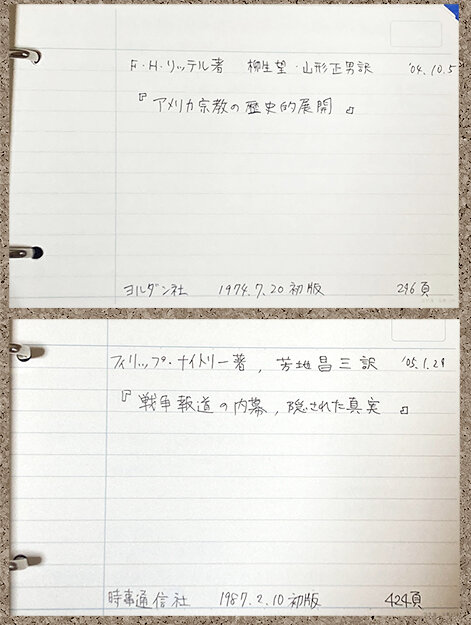 F・H・リッテル著 柳生望・山形正男訳 '04.10.5
『アメリカ宗教の歴史的展開』
ヨルダン社 1974.7.20初版 296頁
フィリップ・ナイトリー著，芳地昌三訳 '05.1.29
『戦争報道の内幕，隠された真実』
時事通信社 1987.2.10初版 424頁